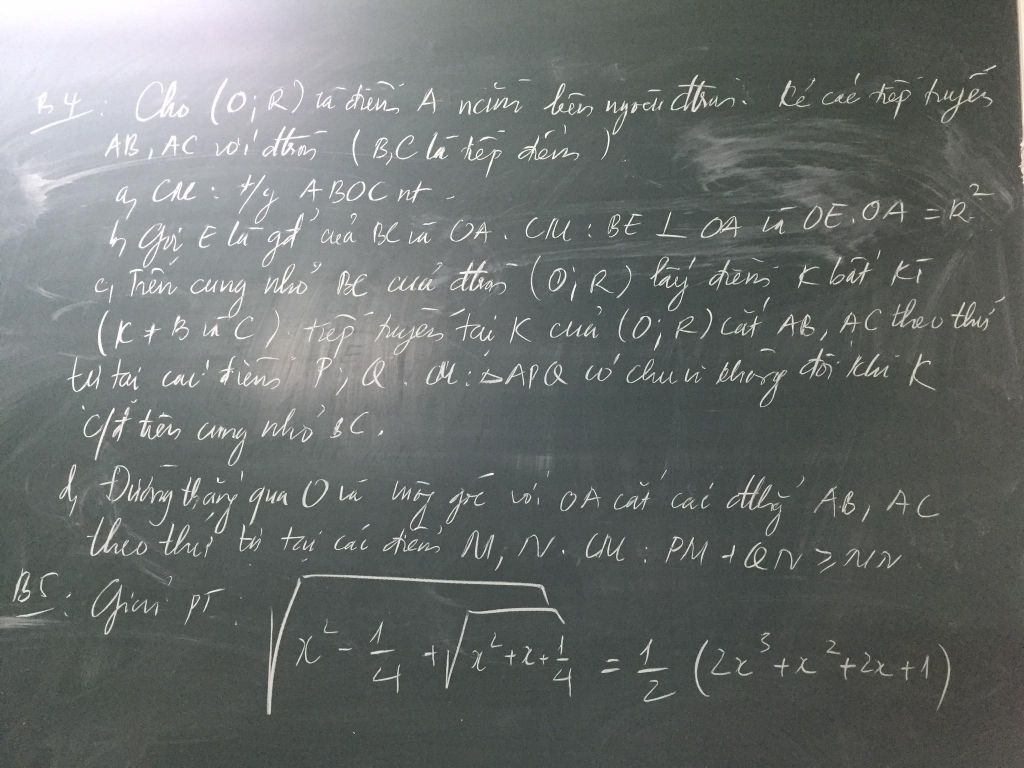 B4: Cho (O; R) và điểm A nằm bên ngoài đtròn. Kẻ các tiếp tuyến
AB, AC với đtròn (B, C là tiếp điểm).
a, CM: t/g ABOC nt.
b, Gọi E là gđ của BC và OA. CM: BE ⊥ OA và OE.OA = R²
c, Trên cung nhỏ BC của đtròn (O; R) lấy điểm K bất kì
(K ≠ B và C). tiếp tuyến tại K của (O; R) cắt AB, AC theo thứ
tự tại các điểm P, Q. CM: △APQ có chu vi không đổi khi K
c/đ trên cung nhỏ BC.
d, Đường thẳng qua O và vuông góc với OA cắt các đthg AB, AC
theo thứ tự tại các điểm M, N. CM: PM + QN ≥ MN
B5: Giải PT: √(x² - 1/4 + √(x² + x + 1/4)) = 1/2 (2x³ + x² + 2x + 1)